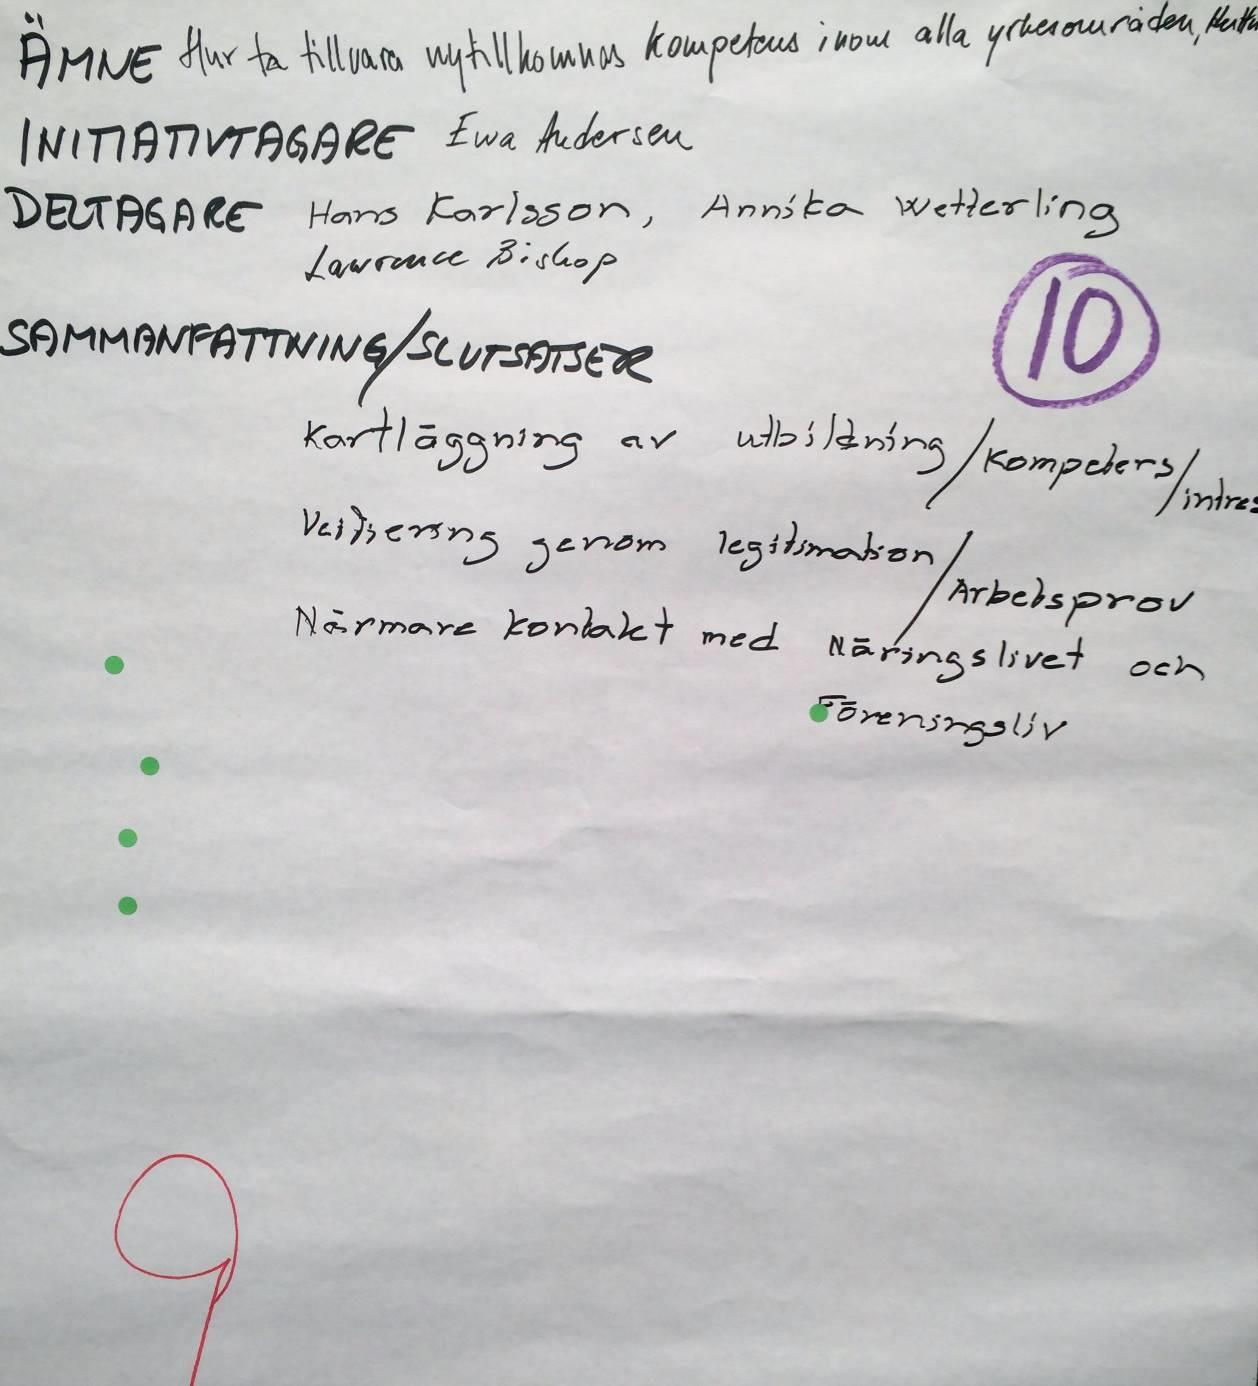 ÄMNE Hur ta tillvara nytillkomnas kompetens inom alla yrkesområden,
INITIATIVTAGARE Ewa Andersen
DELTAGARE Hans Karlsson, Annika Wetterling
Lawrence Bishop
10
SAMMANFATTNING/SLUTSATSER
Kartläggning av utbildning/Kompetens/intres
genom legitimation/Arbetsprov
Närmare kontakt med Näringslivet och
Föreningsliv
9